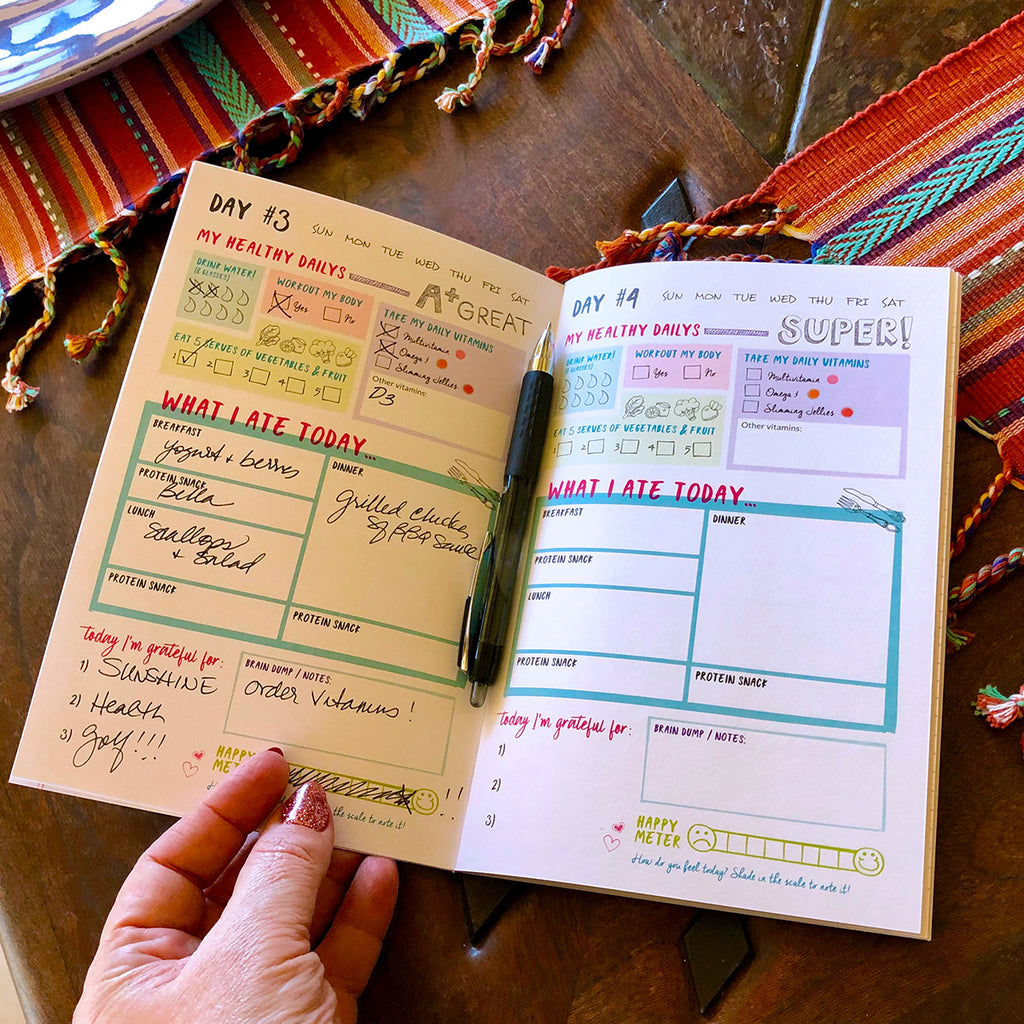 DAY #3
SUN MON TUE WED THU FRI SAT
MY HEALTHY DAILYS
A+ GREAT
DRINK WATER!
(8 GLASSES)
WORKOUT MY BODY
Yes No
TAKE MY DAILY VITAMINS
Multivitamin
Omega 3
Slimming Jellies
Other vitamins:
D3
EAT 5 SERVES OF VEGETABLES & FRUIT
1 2 3 4 5
WHAT I ATE TODAY...
BREAKFAST
yogurt + berries
PROTEIN SNACK
Bella
LUNCH
Scallops
+ Salad
PROTEIN SNACK
DINNER
grilled chicken
BBQ Sauce
PROTEIN SNACK
Today I'm grateful for:
1) SUNSHINE
2) Health
3) Golf!!!
BRAIN DUMP / NOTES:
order vitamins!
HAPPY
METER
!!
the scale to note it!
DAY #4
SUN MON TUE WED THU FRI SAT
MY HEALTHY DAILYS
SUPER!
DRINK WATER!
(8 GLASSES)
WORKOUT MY BODY
Yes No
TAKE MY DAILY VITAMINS
Multivitamin
Omega 3
Slimming Jellies
Other vitamins:
EAT 5 SERVES OF VEGETABLES & FRUIT
1 2 3 4 5
WHAT I ATE TODAY...
BREAKFAST
PROTEIN SNACK
LUNCH
PROTEIN SNACK
DINNER
PROTEIN SNACK
Today I'm grateful for:
1)
2)
3)
BRAIN DUMP / NOTES:
HAPPY
METER
How do you feel today? Shade in the scale to note it!